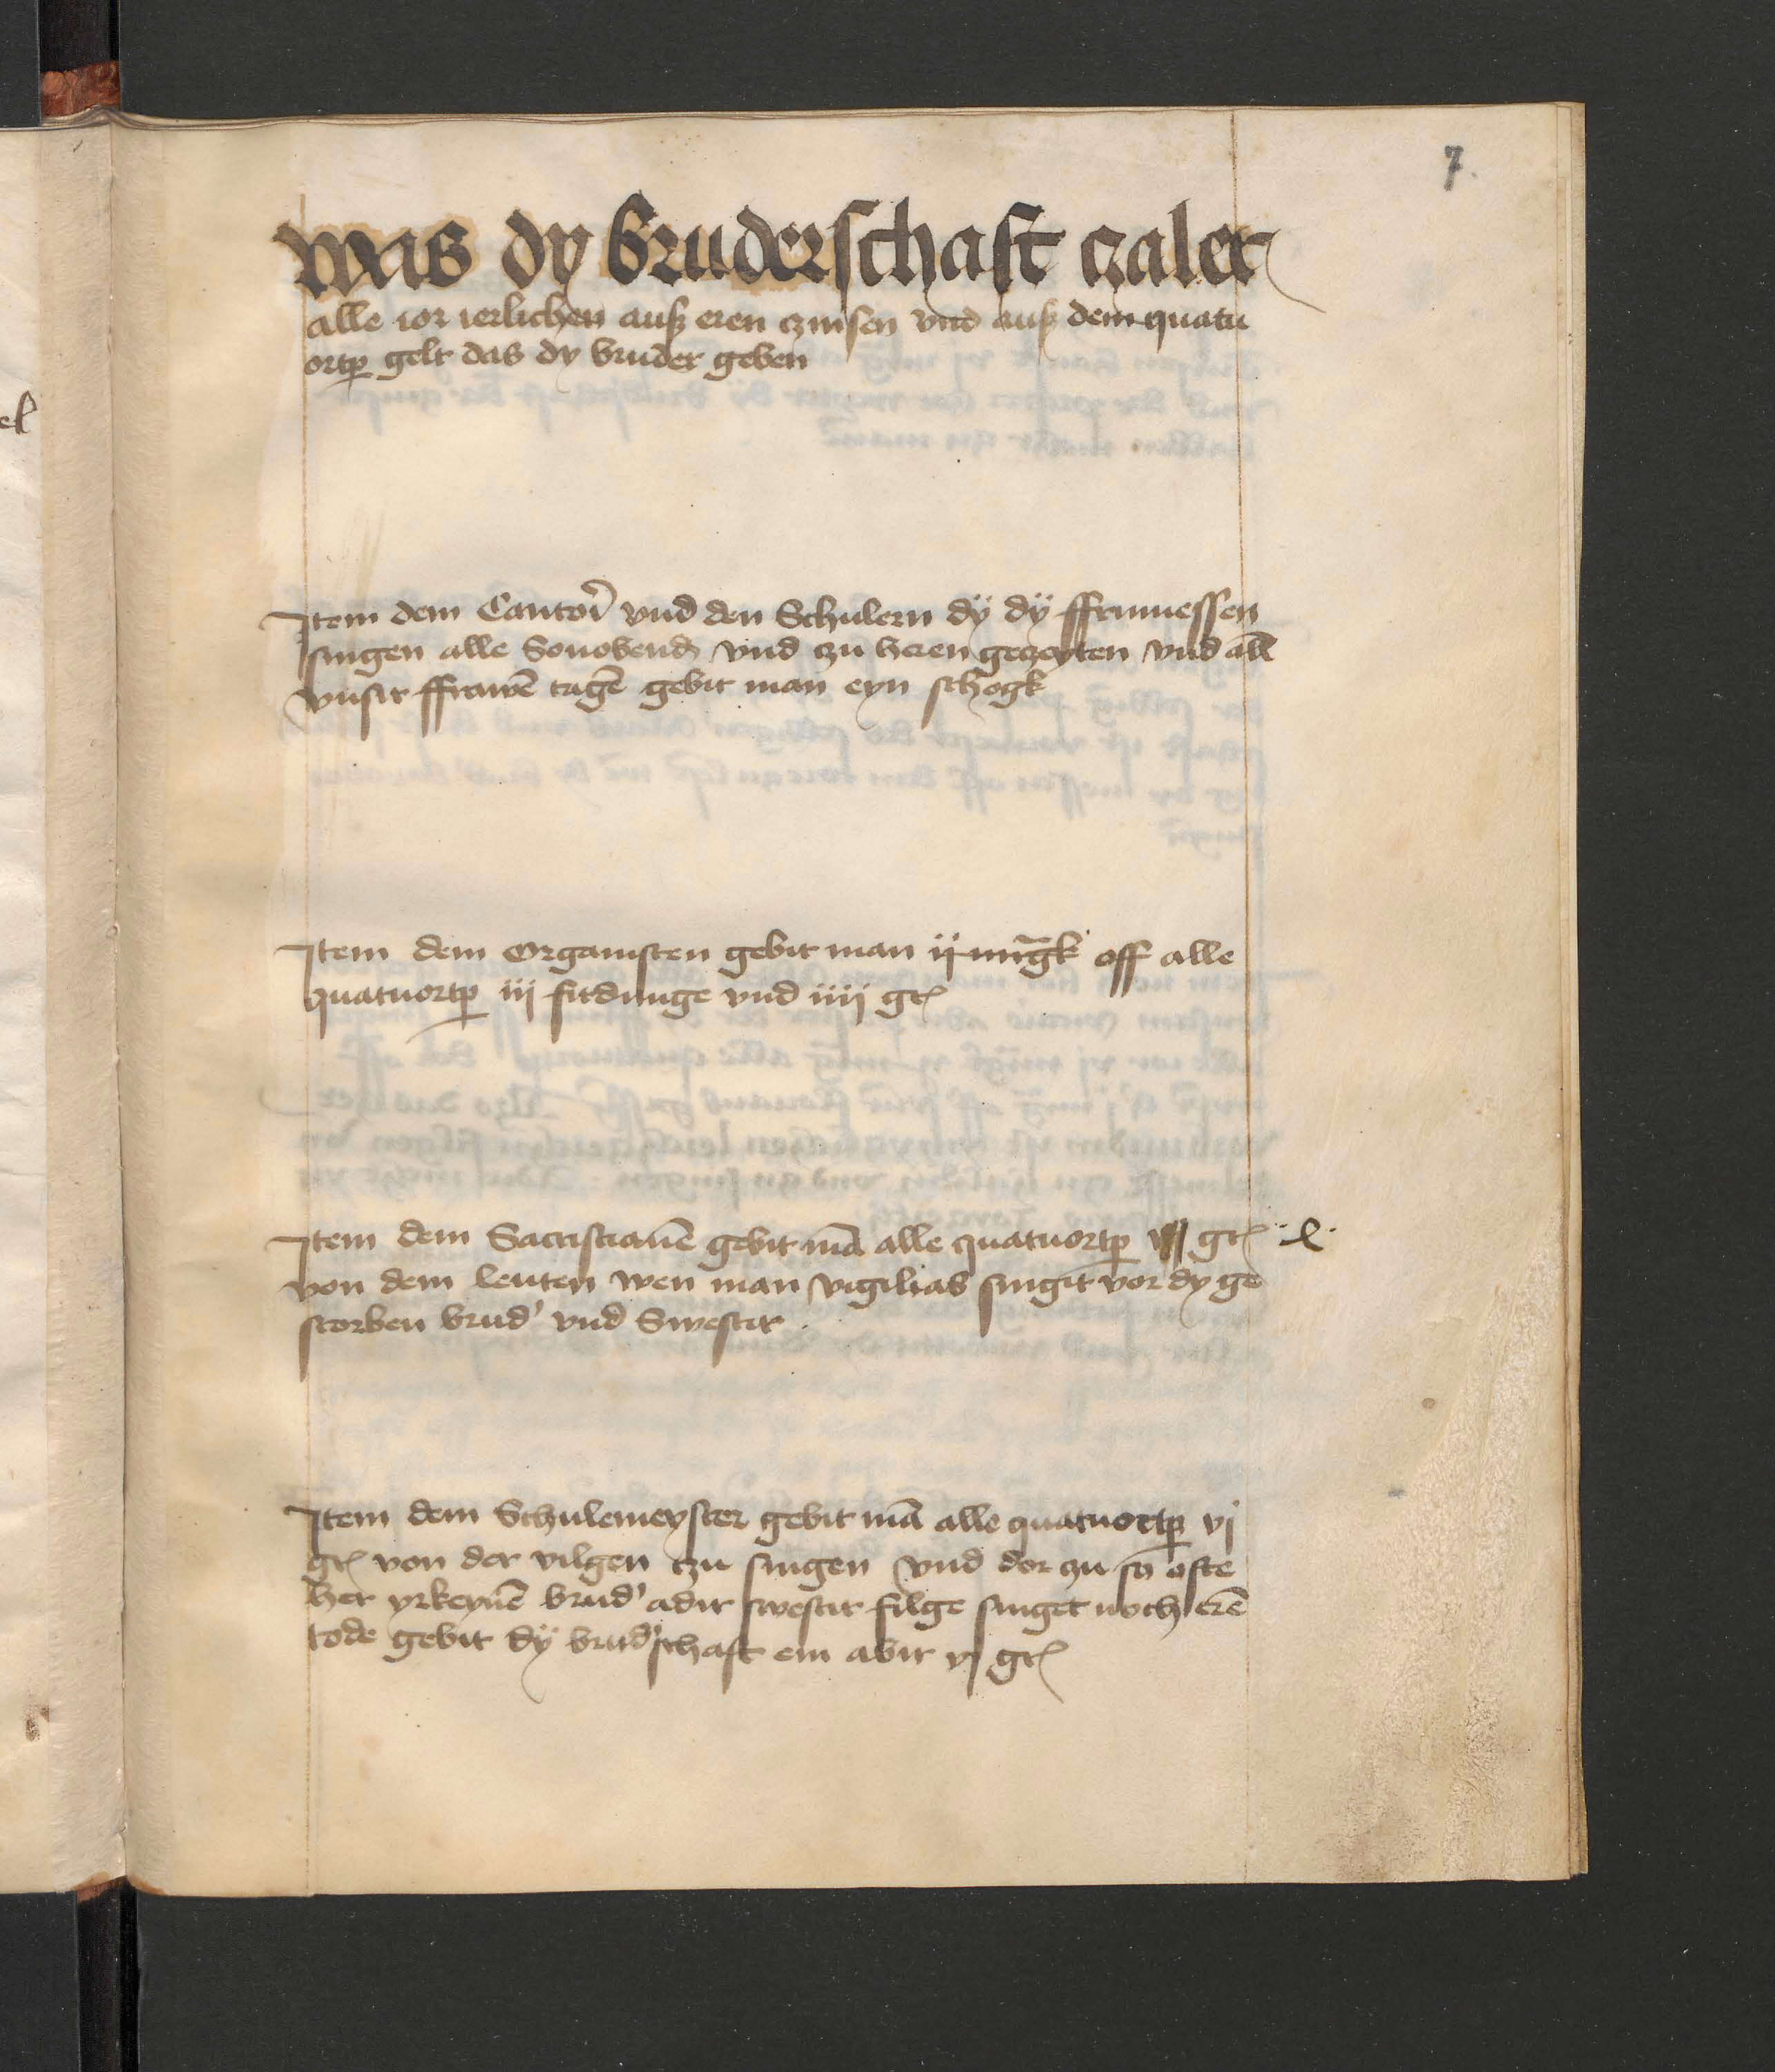 7.
was dy bruderschaft czalet
alle ior ierlichen auß eren czinsen vnd auß dem quatu
ortp̲ gelt das dy bruder geben
Item dem Cantori vnd den Schulern dÿ dÿ ffrumessen
singen alle Sonobend vnd czu heren geczeyten vnd all
vnsir ffrawē tagē gebit man eyn schogk
Item dem Organisten gebit man ij mr̄gk off alle
quatuortp̲ iij firdunge vnd iiij gr̃
Item dem Sacristianē gebit mā alle quatuortp̲ gr̃ ·l·
von dem leuten wen man vigilias singit vor dy ge
storben brud' vnd Swestir .
Item dem Schulemeyster gebit mā alle quatuortp̲ vj
gr̃ von der vilgen czu singen vnd dor zu so ofte
her yrkeynē brud' adir swestir filge singet noch erē
tode gebit dÿ brud'schaft em abir vj gr̃
el